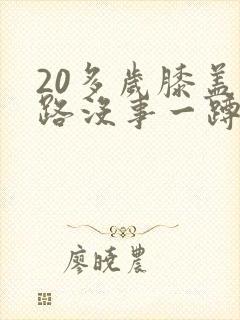 20多歲膝盖
路没事一蹲
廖晓農